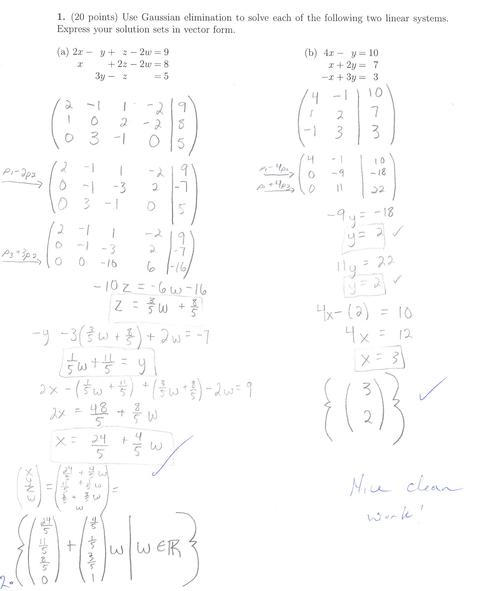 1. (20 points) Use Gaussian elimination to solve each of the following two linear systems.
Express your solution sets in vector form.
(a) 2x − y + z − 2w = 9
x + 2z − 2w = 8
3y − z = 5
2 -1 1 -2 | 9
1 0 2 -2 | 8
0 3 -1 0 | 5
ρ1-2ρ2
2 -1 1 -2 | 9
0 -1 -3 2 | -7
0 3 -1 0 | 5
ρ3+3ρ2
2 -1 1 -2 | 9
0 -1 -3 2 | -7
0 0 -10 6 | -16
-10z = -6w-16
z = 3/5 w + 8/5
-y -3(3/5 w + 8/5) + 2w = -7
1/5 w + 11/5 = y
2x - (1/5 w + 11/5) + (3/5 w + 8/5) - 2w = 9
2x = 48/5 + 8/5 w
x = 24/5 + 4/5 w
(x y z w) = (24/5 + 4/5 w, 11/5 + 1/5 w, 8/5 + 3/5 w, w) =
{ (24/5 11/5 8/5 0) + (4/5 1/5 3/5 1) w | w ∈ ℝ }
2.
(b) 4x − y = 10
x + 2y = 7
−x + 3y = 3
4 -1 | 10
1 2 | 7
-1 3 | 3
ρ1-4ρ2
ρ1+4ρ3
4 -1 | 10
0 -9 | -18
0 11 | 22
-9y = -18
y = 2 ✓
11y = 22
y = 2 ✓
4x-(2) = 10
4x = 12
x = 3
{ (3 2) } ✓
Nice clean
work!